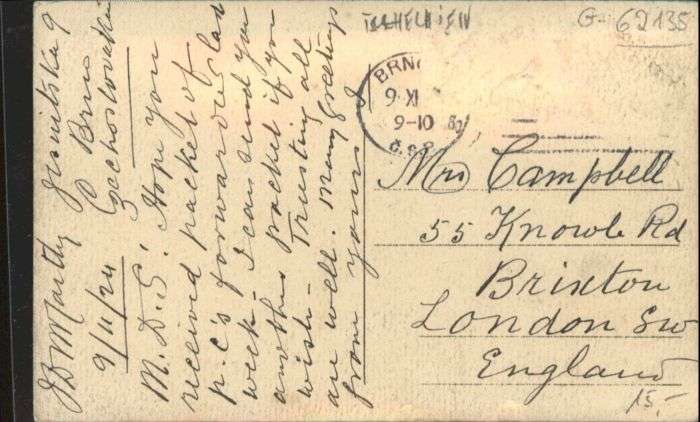 TSCHECHIEN
G-62135
BRNO
9 XI
9-10
ČSR
J D McCarthy
9/11/24
Brno
M.D.S. Hope you
received packet of
P.C's forwarded last
week. I can send you
another packet if you
wish - Trusting all
are well. Many greetings
from yours
Mrs Campbell
55 Knowle Rd
Brixton
London SW
England
15,-